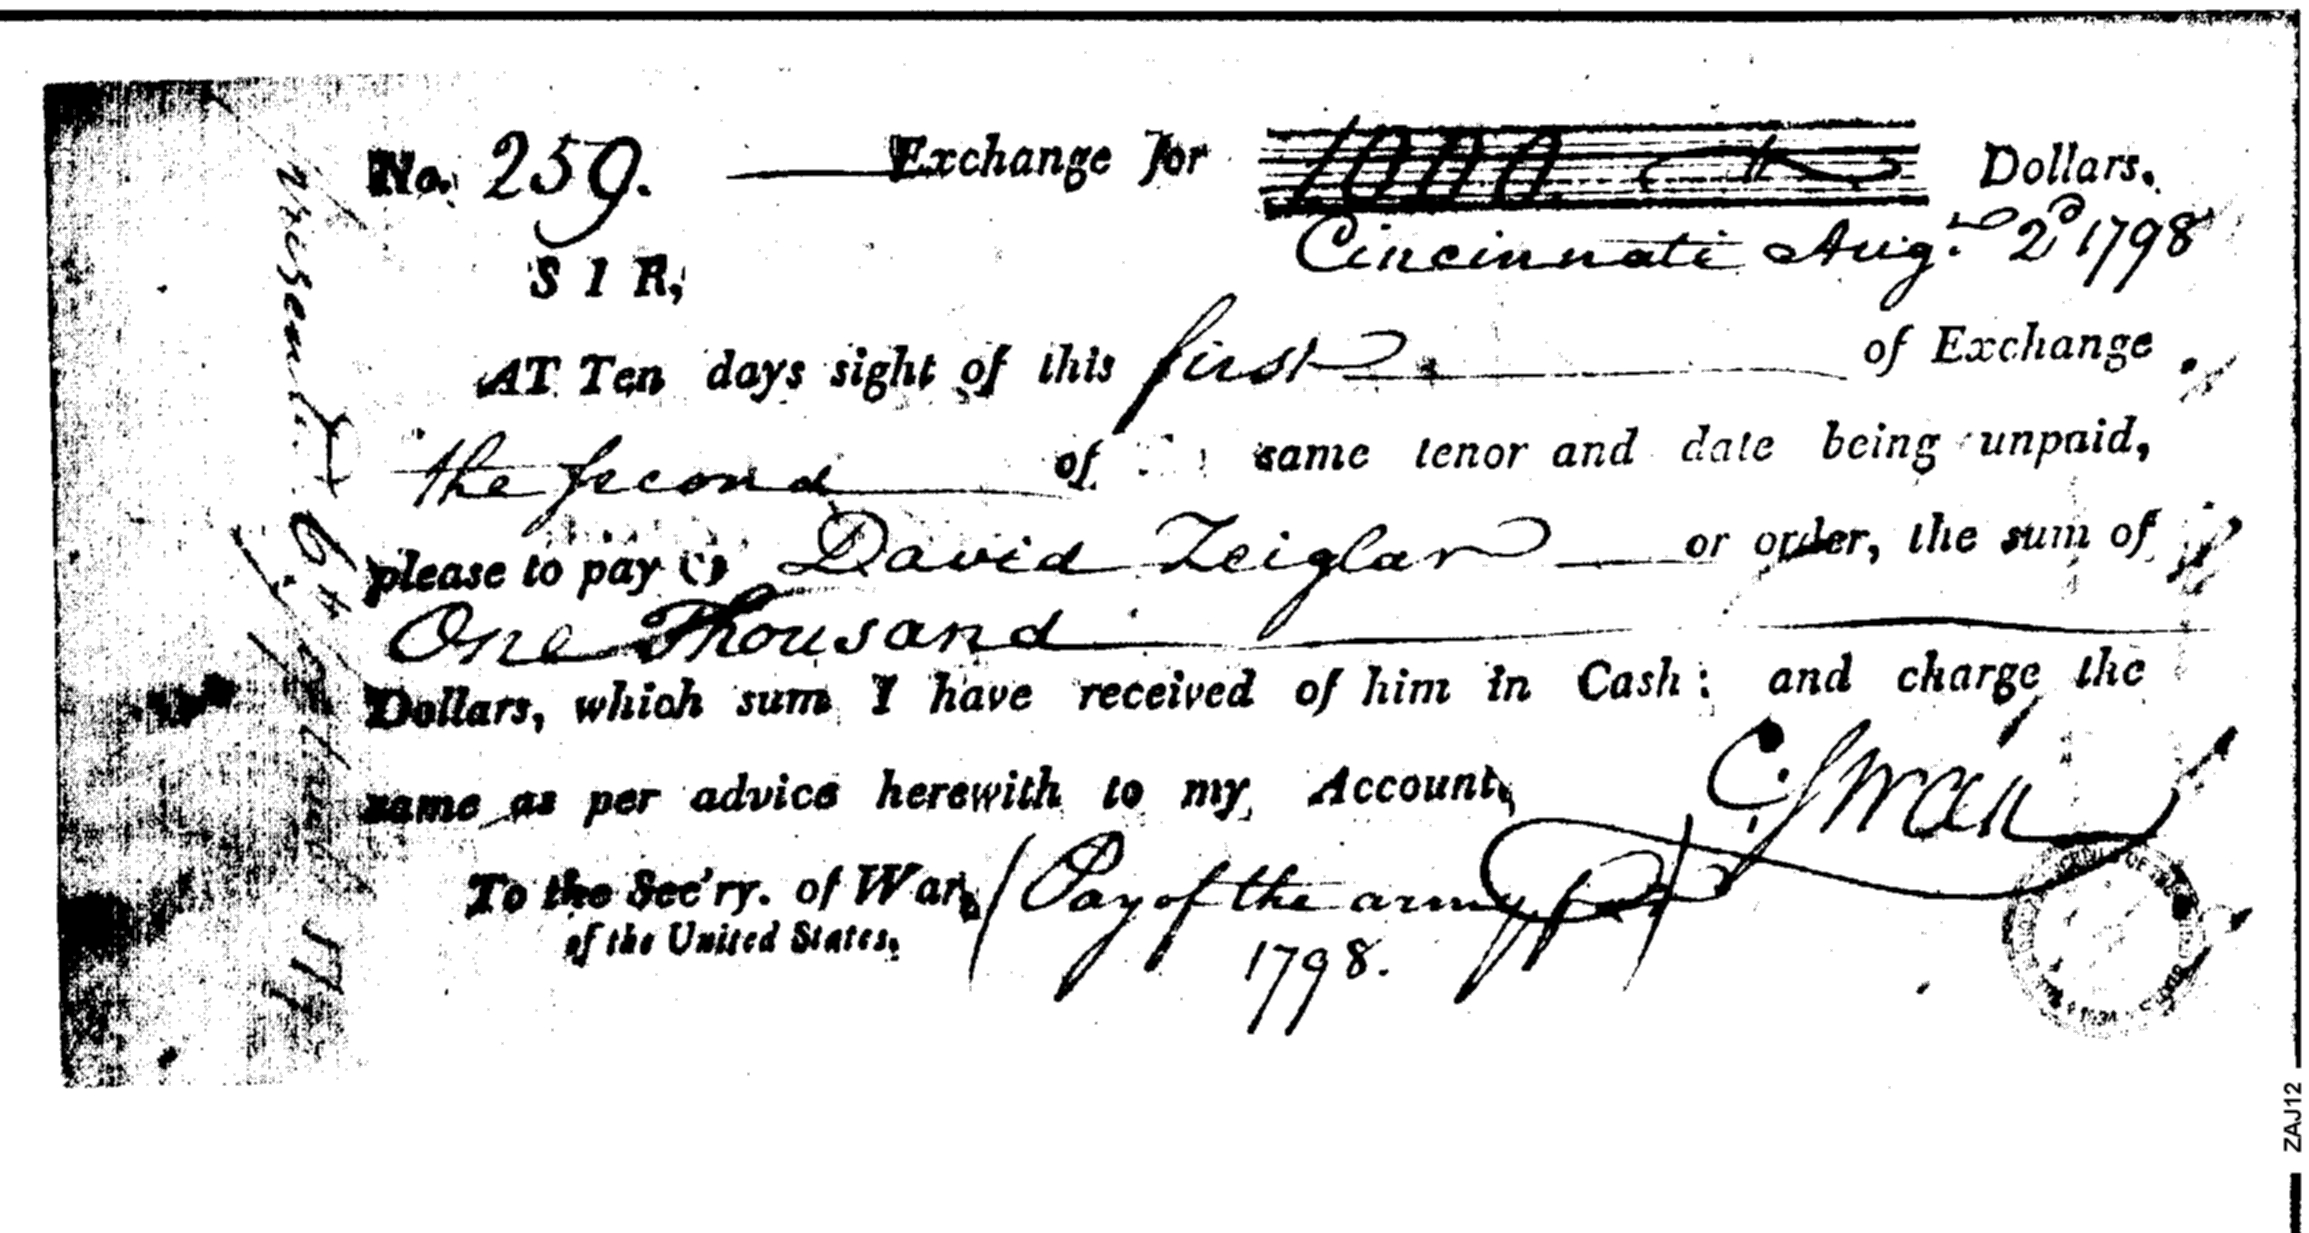 No. 259. Exchange for 1000 Dollars.
Cincinnati Aug. 2d 1798
SIR,
AT Ten days sight of this first of Exchange
the second of same tenor and date being unpaid,
please to pay to David Zeiglar or order, the sum of
One Thousand
Dollars, which sum I have received of him in Cash: and charge the
same as per advice herewith to my Account,
C. Swan
To the Sec'ry. of War, Pay of the army
of the United States, 1798.
ZAJ12